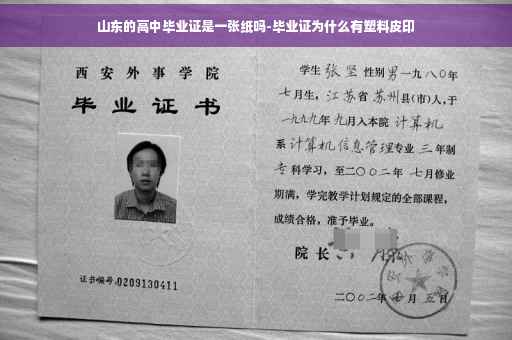 山东的高中毕业证是一张纸吗-毕业证为什么有塑料皮印
西安外事学院
毕业证书
证书编号:0209130411
学生 张坚 性别 男 一九八〇年
七月生，江苏省 苏州县(市)人，于
一九九九年 九月入本院 计算机
系 计算机信息管理专业 三 年制
专科学习，至二〇〇二年 七月修业
期满，学完教学计划规定的全部课程，
成绩合格，准予毕业。
院长
二〇〇二年 月 五日